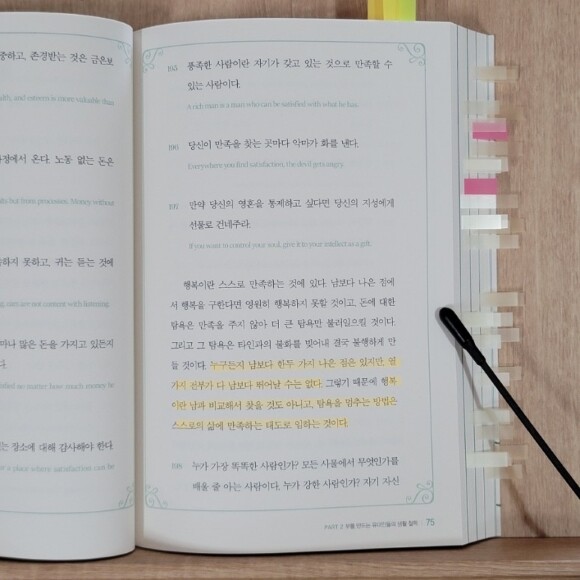 중하고, 존경받는 것은 금은보
alth, and esteem is more valuable than
과정에서 온다. 노동 없는 돈은
but from profession. Money without
하지 못하고, 귀는 듣는 것에
ing, ears are not content with listening.
마나 많은 돈을 가지고 있든지
다.
no matter how much money he
있는 장소에 대해 감사해야 한다.
for a place where satisfaction can be
195 풍족한 사람이란 자기가 갖고 있는 것으로 만족할 수
있는 사람이다.
A rich man is a man who can be satisfied with what he has.
196 당신이 만족을 찾는 곳마다 악마가 화를 낸다.
Everywhere you find satisfaction, the devil gets angry.
197 만약 당신의 영혼을 통제하고 싶다면 당신의 지성에게
선물로 건네주라.
If you want to control your soul, give it to your intellect as a gift.
행복이란 스스로 만족하는 것에 있다. 남보다 나은 점에
서 행복을 구한다면 영원히 행복하지 못할 것이고, 돈에 대한
탐욕은 만족을 주지 않아 더 큰 탐욕만 불러일으킬 것이다.
그리고 그 탐욕은 타인과의 불화를 빚어내 결국 불행하게 만
들 것이다. 누구든지 남보다 한두 가지 나은 점은 있지만, 열
가지 전부가 다 남보다 뛰어날 수는 없다. 그렇기 때문에 행복
이란 남과 비교해서 찾을 것도 아니고, 탐욕을 멈추는 방법은
스스로의 삶에 만족하는 태도로 임하는 것이다.
198 누가 가장 똑똑한 사람인가? 모든 사물에서 무엇인가를
배울 줄 아는 사람이다. 누가 강한 사람인가? 자기 자신
PART 2 부를 만드는 유대인들의 생활 철학 75